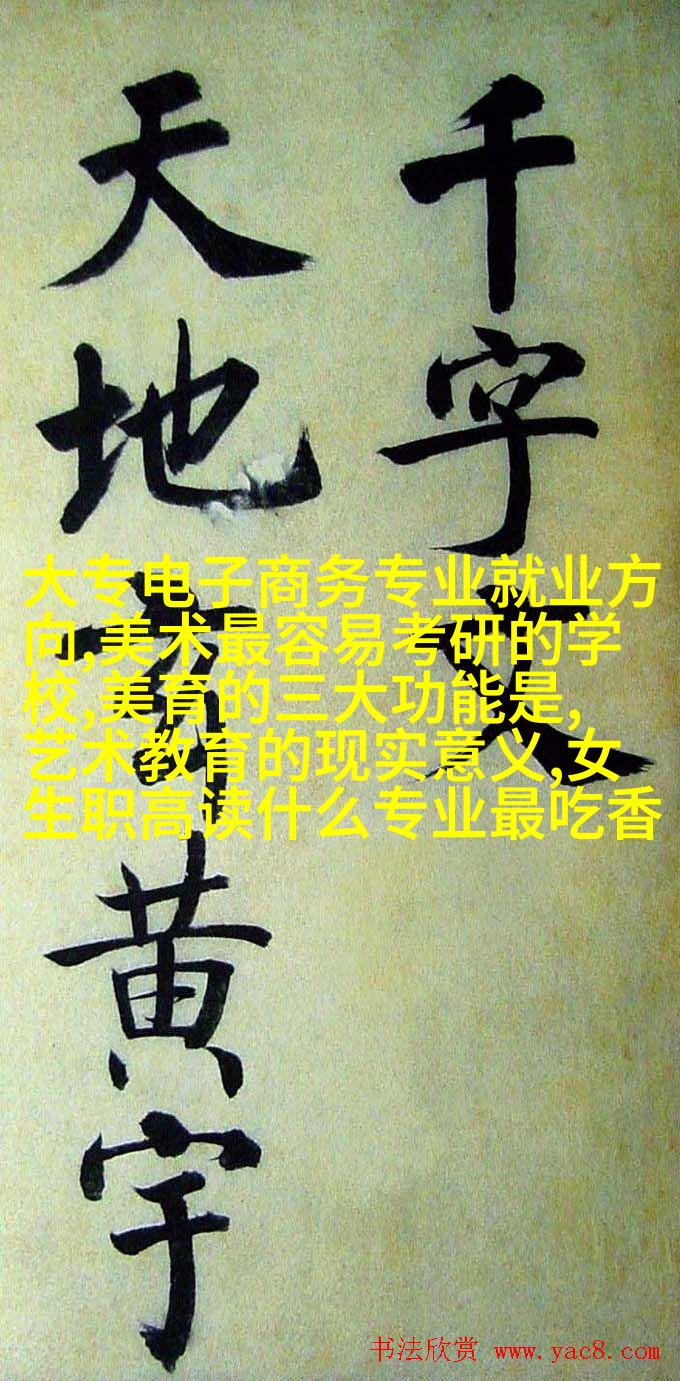 千字文
天地玄黄宇
大专电子商务专业就业方
向,美术最容易考研的学
校,美育的三大功能是,
艺术教育的现实意义,女
生职高读什么专业最吃香
书法欣赏 www.yac8.com